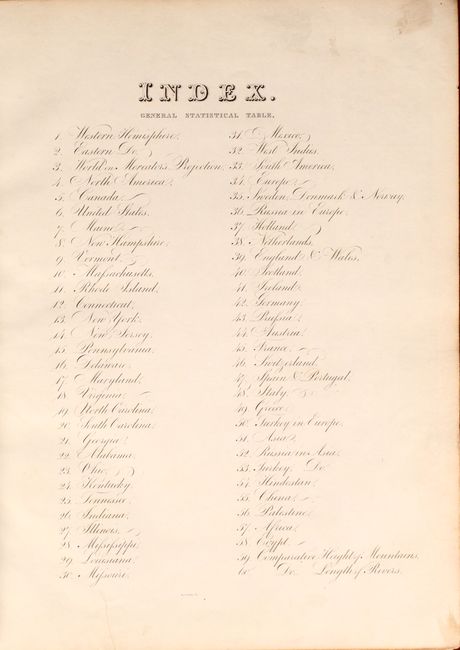 INDEX.
GENERAL STATISTICAL TABLE.
1. Western Hemisphere,
2. Eastern Do.
3. World on Mercators Projection,
4. North America,
5. Canada,
6. United States,
7. Maine,
8. New Hampshire,
9. Vermont,
10. Massachusetts,
11. Rhode Island,
12. Connecticut,
13. New York,
14. New Jersey,
15. Pennsylvania,
16. Delaware,
17. Maryland,
18. Virginia,
19. North Carolina,
20. South Carolina,
21. Georgia,
22. Alabama,
23. Ohio,
24. Kentucky,
25. Tennessee,
26. Indiana,
27. Illinois,
28. Mississippi,
29. Louisiana,
30. Missouri,
31. Mexico,
32. West Indies,
33. South America,
34. Europe,
35. Sweden, Denmark & Norway,
36. Russia in Europe,
37. Holland,
38. Netherlands,
39. England & Wales,
40. Scotland,
41. Ireland,
42. Germany,
43. Prussia,
44. Austria,
45. France,
46. Switzerland,
47. Spain & Portugal,
48. Italy,
49. Greece,
50. Turkey in Europe,
51. Asia,
52. Russia in Asia,
53. Turkey, Do.
54. Hindostan,
55. China,
56. Palestine,
57. Africa,
58. Egypt
59. Comparative Height of Mountains,
60. Do. Length of Rivers.